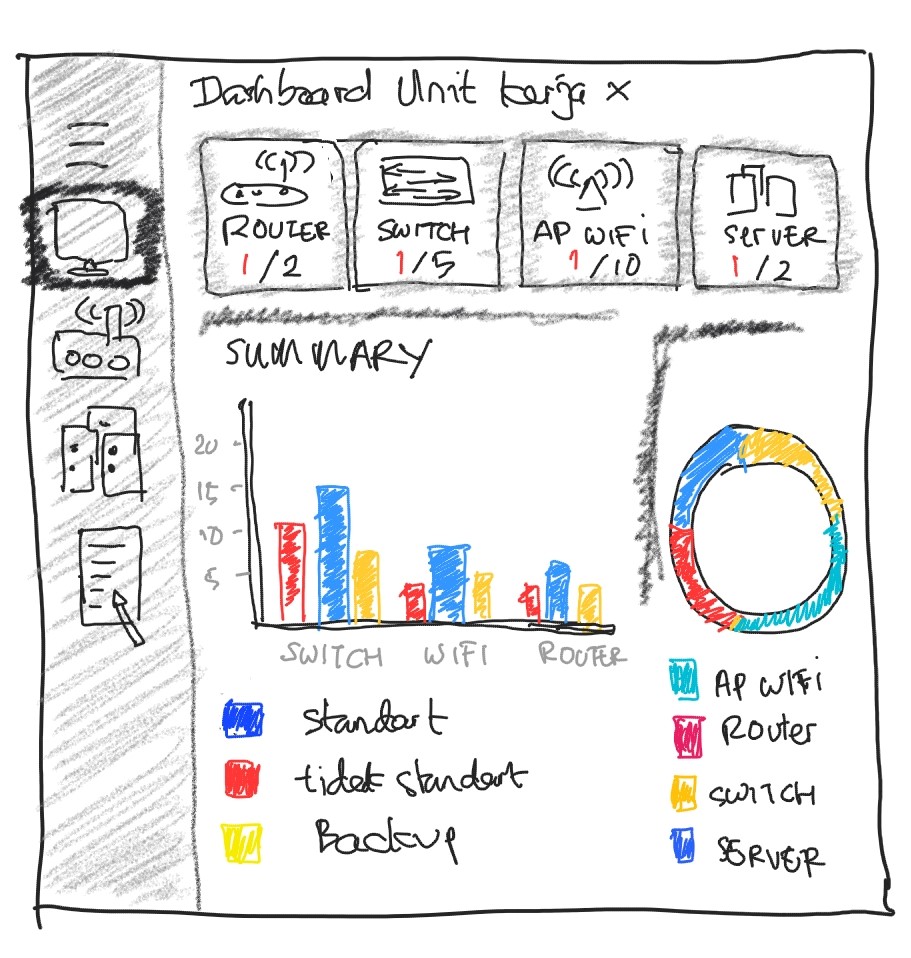 Dashboard Unit kerja x
ROUTER
1/2
SWITCH
1/5
AP WIFI
1/10
SERVER
1/2
SUMMARY
20
15
10
5
SWITCH WIFI ROUTER
standart
tidak standart
Backup
AP WIFI
Router
SWITCH
SERVER